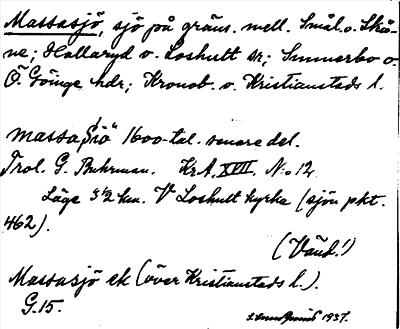 Massasjö, sjö på gräns. mell. Smål. o. Skå-
ne; Hallaryd o. Loshult sr; Sunnerbo o.
Ö. Göinge hdr; Kronob. o. Kristianstads l.
massasiö" 1600-tal. senare del.
Trol. G. Buhrman. Kr A. XVII. No 12.
Läge 3½ km. V Loshult kyrka (sjön pkt.
462).
(Vänd!)
Massasjö ek (över Kristianstads l.).
G. 15.
1937.